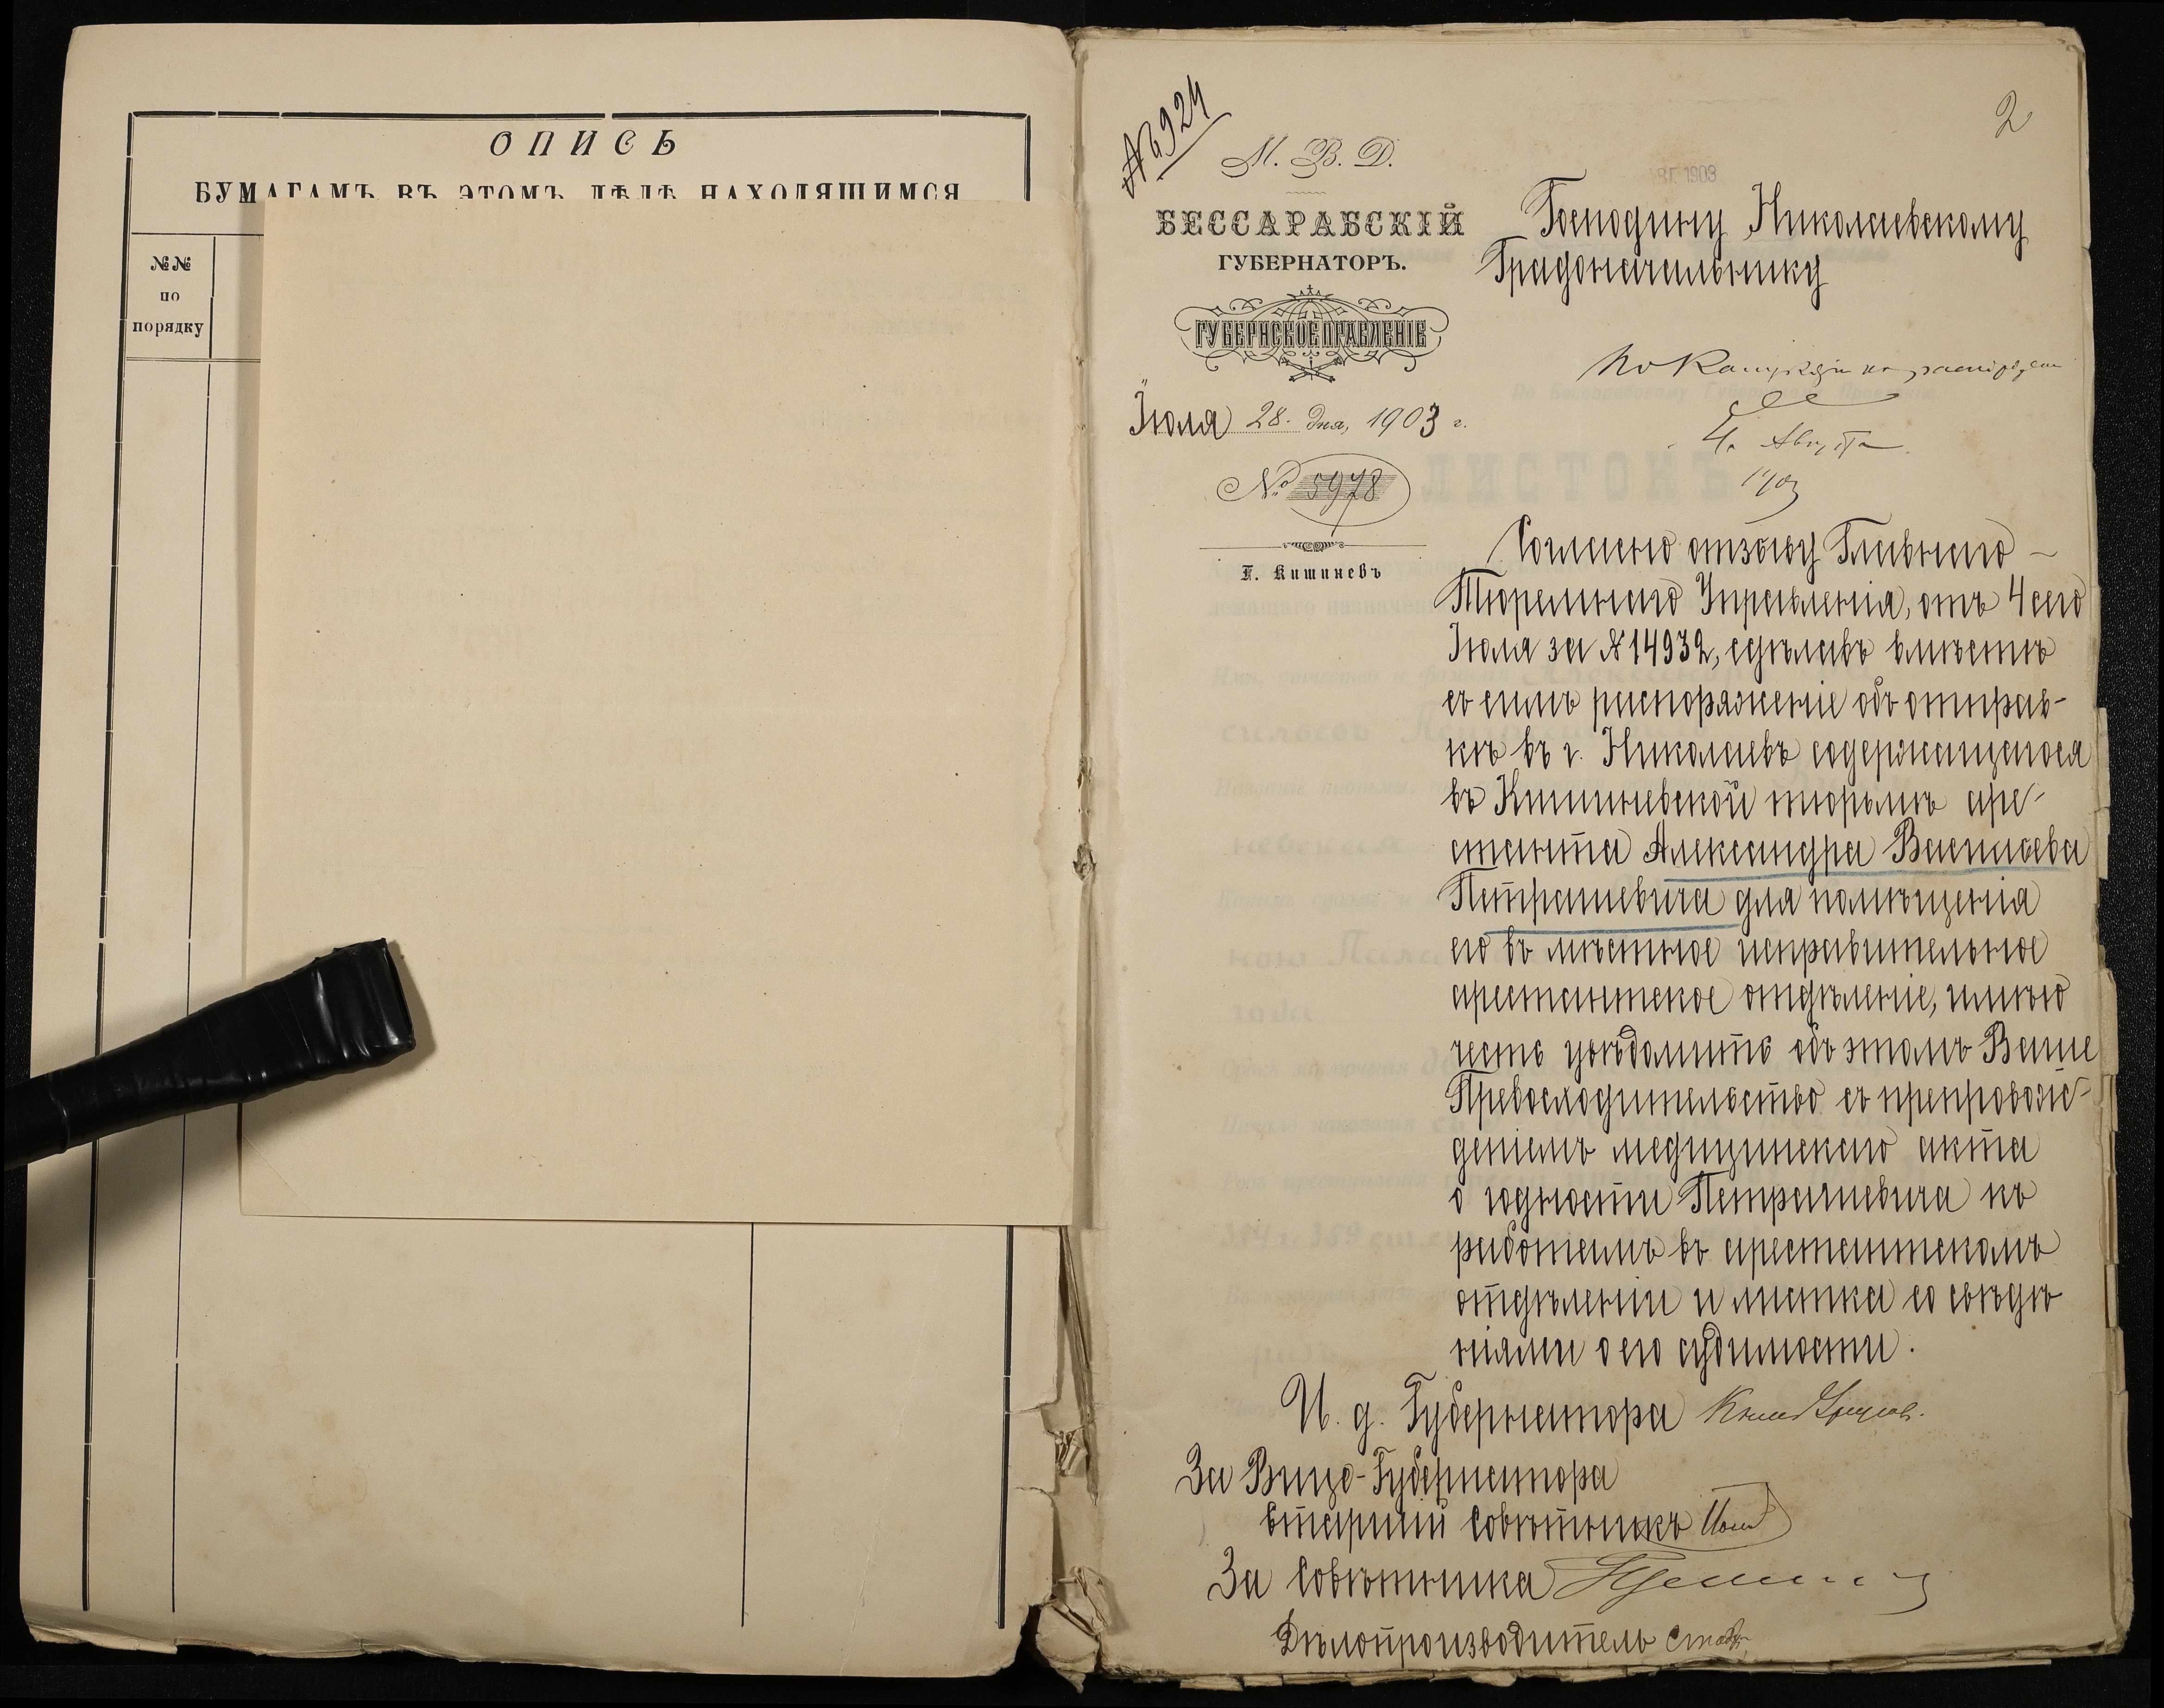 ОПИСЬ
БУМАГАМЪ ВЪ ЭТОМЪ ДѢЛѢ НАХОДЯЩИМСЯ
№№
по
порядку
2
№ 924
М. В. Д.
БЕССАРАБСКІЙ
ГУБЕРНАТОРЪ.
ГУБЕРНСКОЕ ПРАВЛЕНІЕ
Іюля 28 дня, 1903 г.
№ 5978
Г. Кишиневъ
1903
Господину Николаевскому
Градоначальнику
4 Августа
1903
Согласно отзыву Главнаго
Тюремнаго Управленія, отъ 4 сего
Іюля за № 14932, сдѣлавъ вмѣстѣ
съ симъ распоряженіе объ отправ-
кѣ въ г. Николаевъ содержащагося
въ Кишиневской тюрьмѣ аре-
станта Александра Васильева
Петрашевича для помѣщенія
его въ мѣстное исправительное
арестантское отдѣленіе, имѣю
честь увѣдомить объ этомъ Ваше
Превосходительство съ препровож-
деніемъ медицинскаго акта
о годности Петрашевича къ
работамъ въ арестантскомъ
отдѣленіи и листка со свѣдѣ
ніями о его судимости.
И. д. Губернатора Князь Урусов.
За Вице-Губернатора
Старшій Совѣтникъ
За Совѣтника
Дѣлопроизводитель